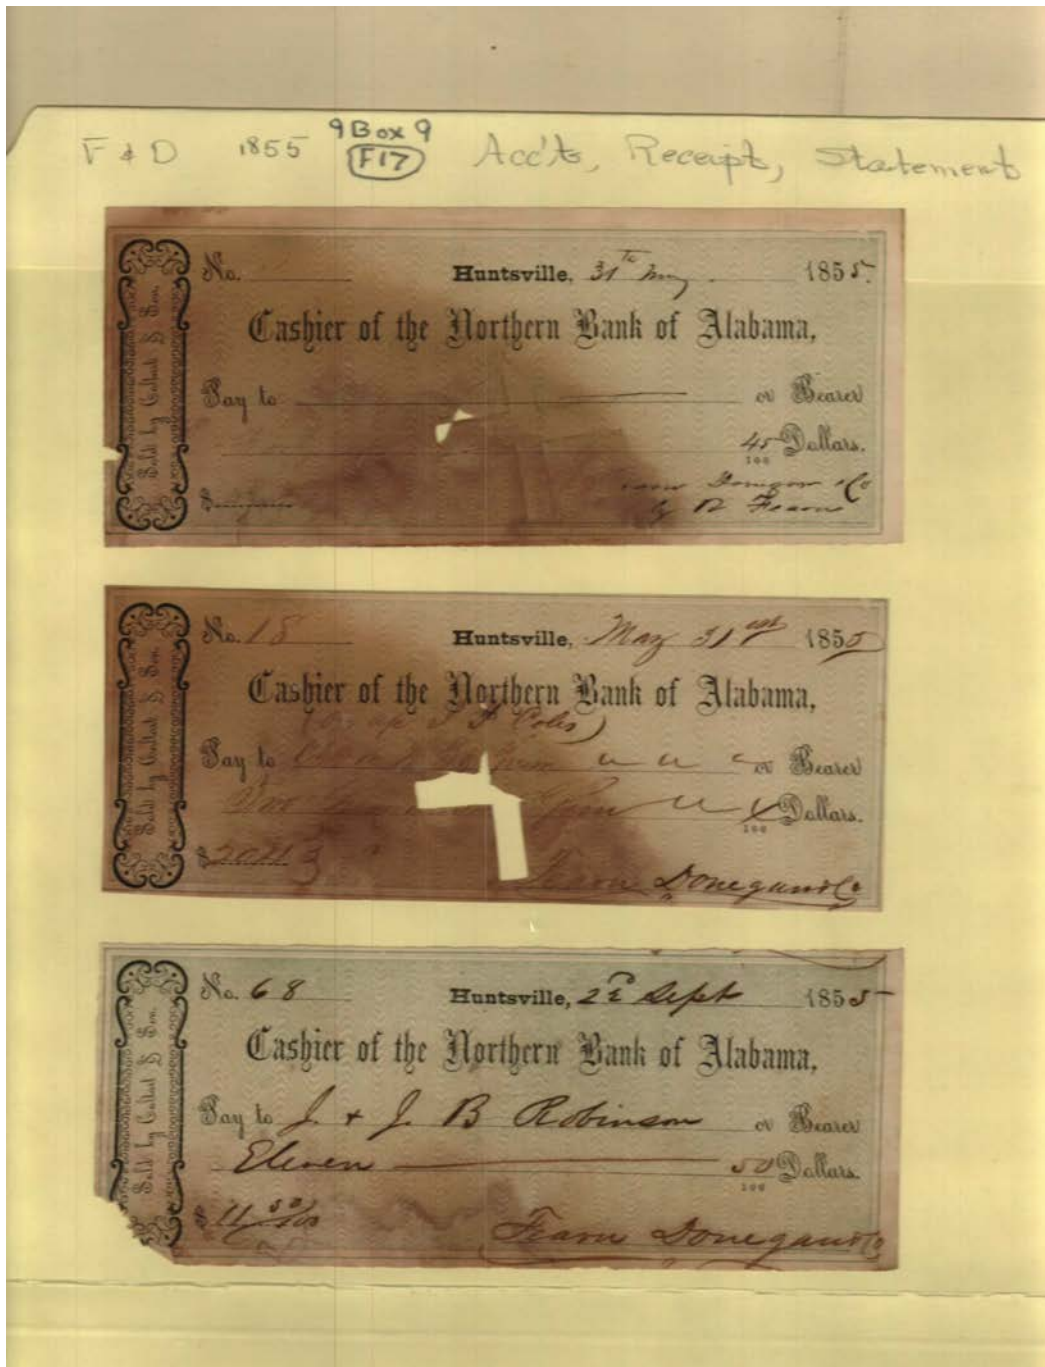 9 Box 9
F & D 1855 F17 Acc'ts, Receipt, Statement
No. Huntsville, 31th May 1855.
Cashier of the Northern Bank of Alabama,
Pay to or Bearer
45 Dollars.
100
Donegan & Co
by R Fearn
Sold by Coltart & Son.
No. 18 Huntsville, May 31st 1855
Cashier of the Northern Bank of Alabama,
Coles)
Pay to or Bearer
Dollars.
100
$
Fearn Donegan & Co
Sold by Coltart & Son.
No. 68 Huntsville, 2d Sept 1855
Cashier of the Northern Bank of Alabama,
Pay to J. & J. B Robinson or Bearer
Eleven 50 Dollars.
100
$ 11 50/100
Fearn Donegan & Co
Sold by Coltart & Son.